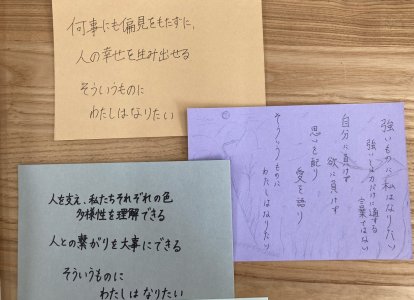 何事にも偏見をもたずに、
人の幸せを生み出せる
そういうものに
わたしはなりたい
強いものに私はなりたい
強いとは力だけに通する
言葉ではない
自分に負けず
欲に負けず
思いを配り
愛を語り
そういうものに
わたしはなりたい
人を支え、私たちそれぞれの色
多様性を理解できる
人との繋がりを大事にできる
そういうものに
わたしはなりたい